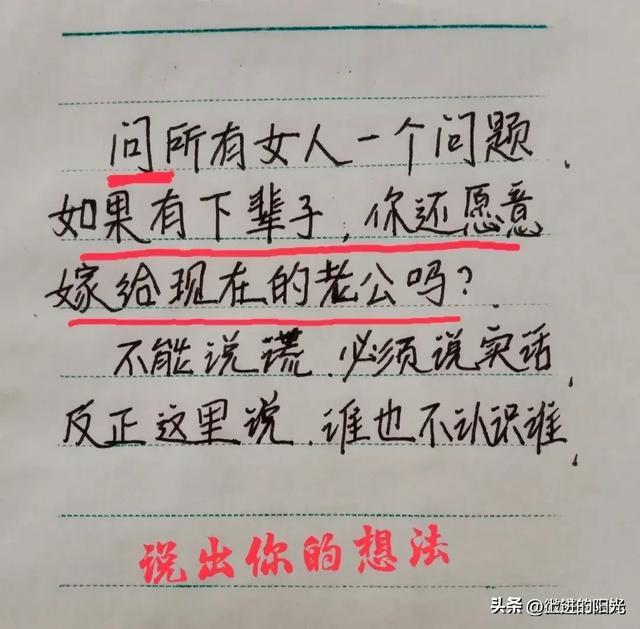 问所有女人一个问题、
如果有下辈子，你还愿意
嫁给现在的老公吗？
不能说谎、必须说实话
反正这里说、谁也不认识谁、
说出你的想法
头条 @